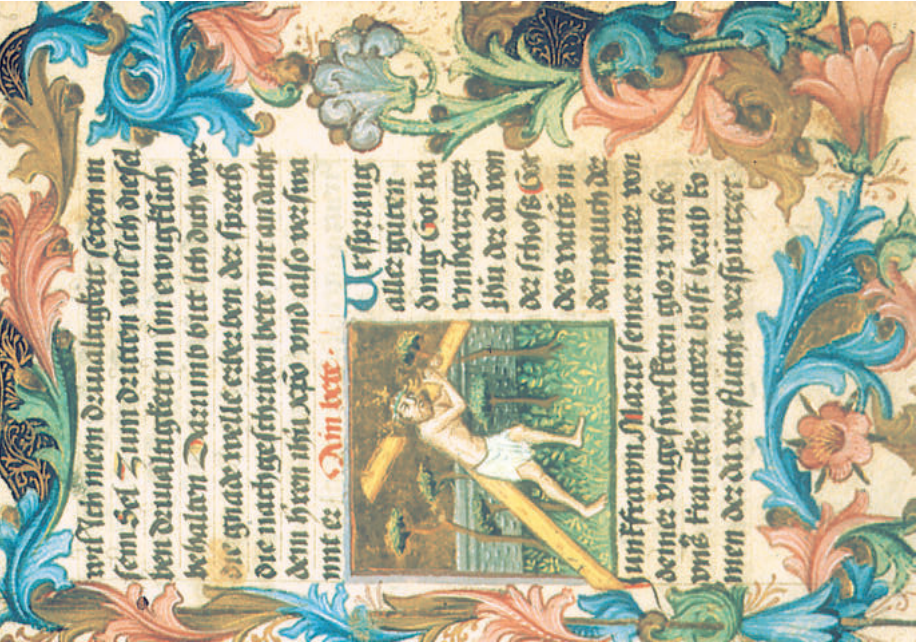 wil Ich mein driualtigkeit setzen in
sein Sel Zum dritten wil Ich diesel
ben driualtigkeit in Im ewigklich
behalten Darumb bitt Ich dich wer
die gnade welle erberben der sprech
die nachgeschriben bete mit andacht
dem hren ihu xpo vnd also verswa
int er Ain bete.
Ursprung
aller guten
ding Got ba
rmhertziger
Jhu der da von
der schoß Got
des vatts in
den pauch der
iunkfrawn Marie seiner muter von
deiner vngeswelkten glori vmbe
vnß krancke materi bist herab ko
men der da verfluchte